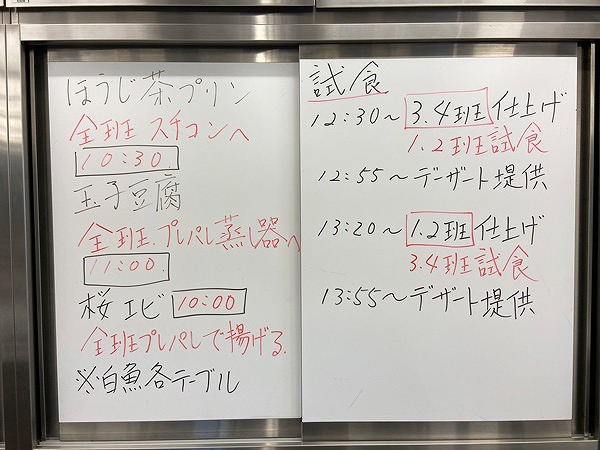 ほうじ茶プリン
全班 スチコンへ
10:30
玉子豆腐
全班.プレパレ蒸し器へ
11:00.
桜エビ 10:00
全班プレパレで揚げる.
※白魚各テーブル
試食
12:30～ 3.4班 仕上げ
1.2班試食
12:55～デザート提供
13:20～ 1.2班 仕上げ
3.4班試食
13:55～デザート提供